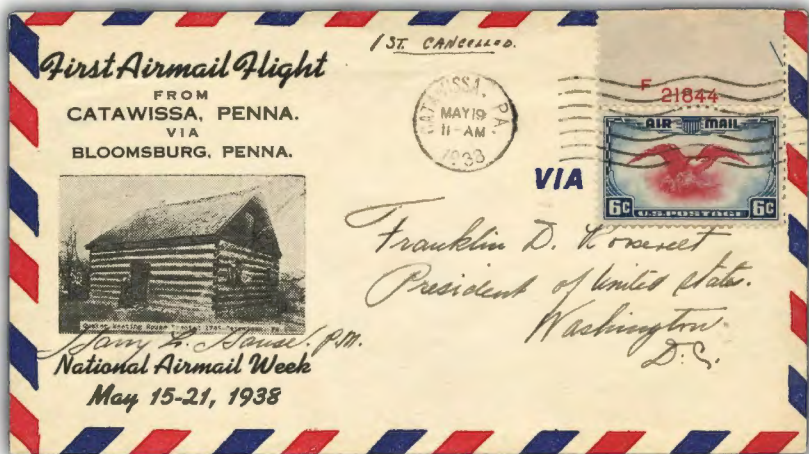 1 ST. CANCELLED.
First Airmail Flight
FROM
CATAWISSA, PENNA.
VIA
BLOOMSBURG, PENNA.
CATAWISSA, PA.
MAY 19
11-AM
1938
F 21844
AIR MAIL
6¢ 6¢
U.S. POSTAGE
VIA
Franklin D. Roosevelt
President of United States.
Washington
D.C.
Quaker Meeting House
Harry L. House. P.M.
National Airmail Week
May 15-21, 1938